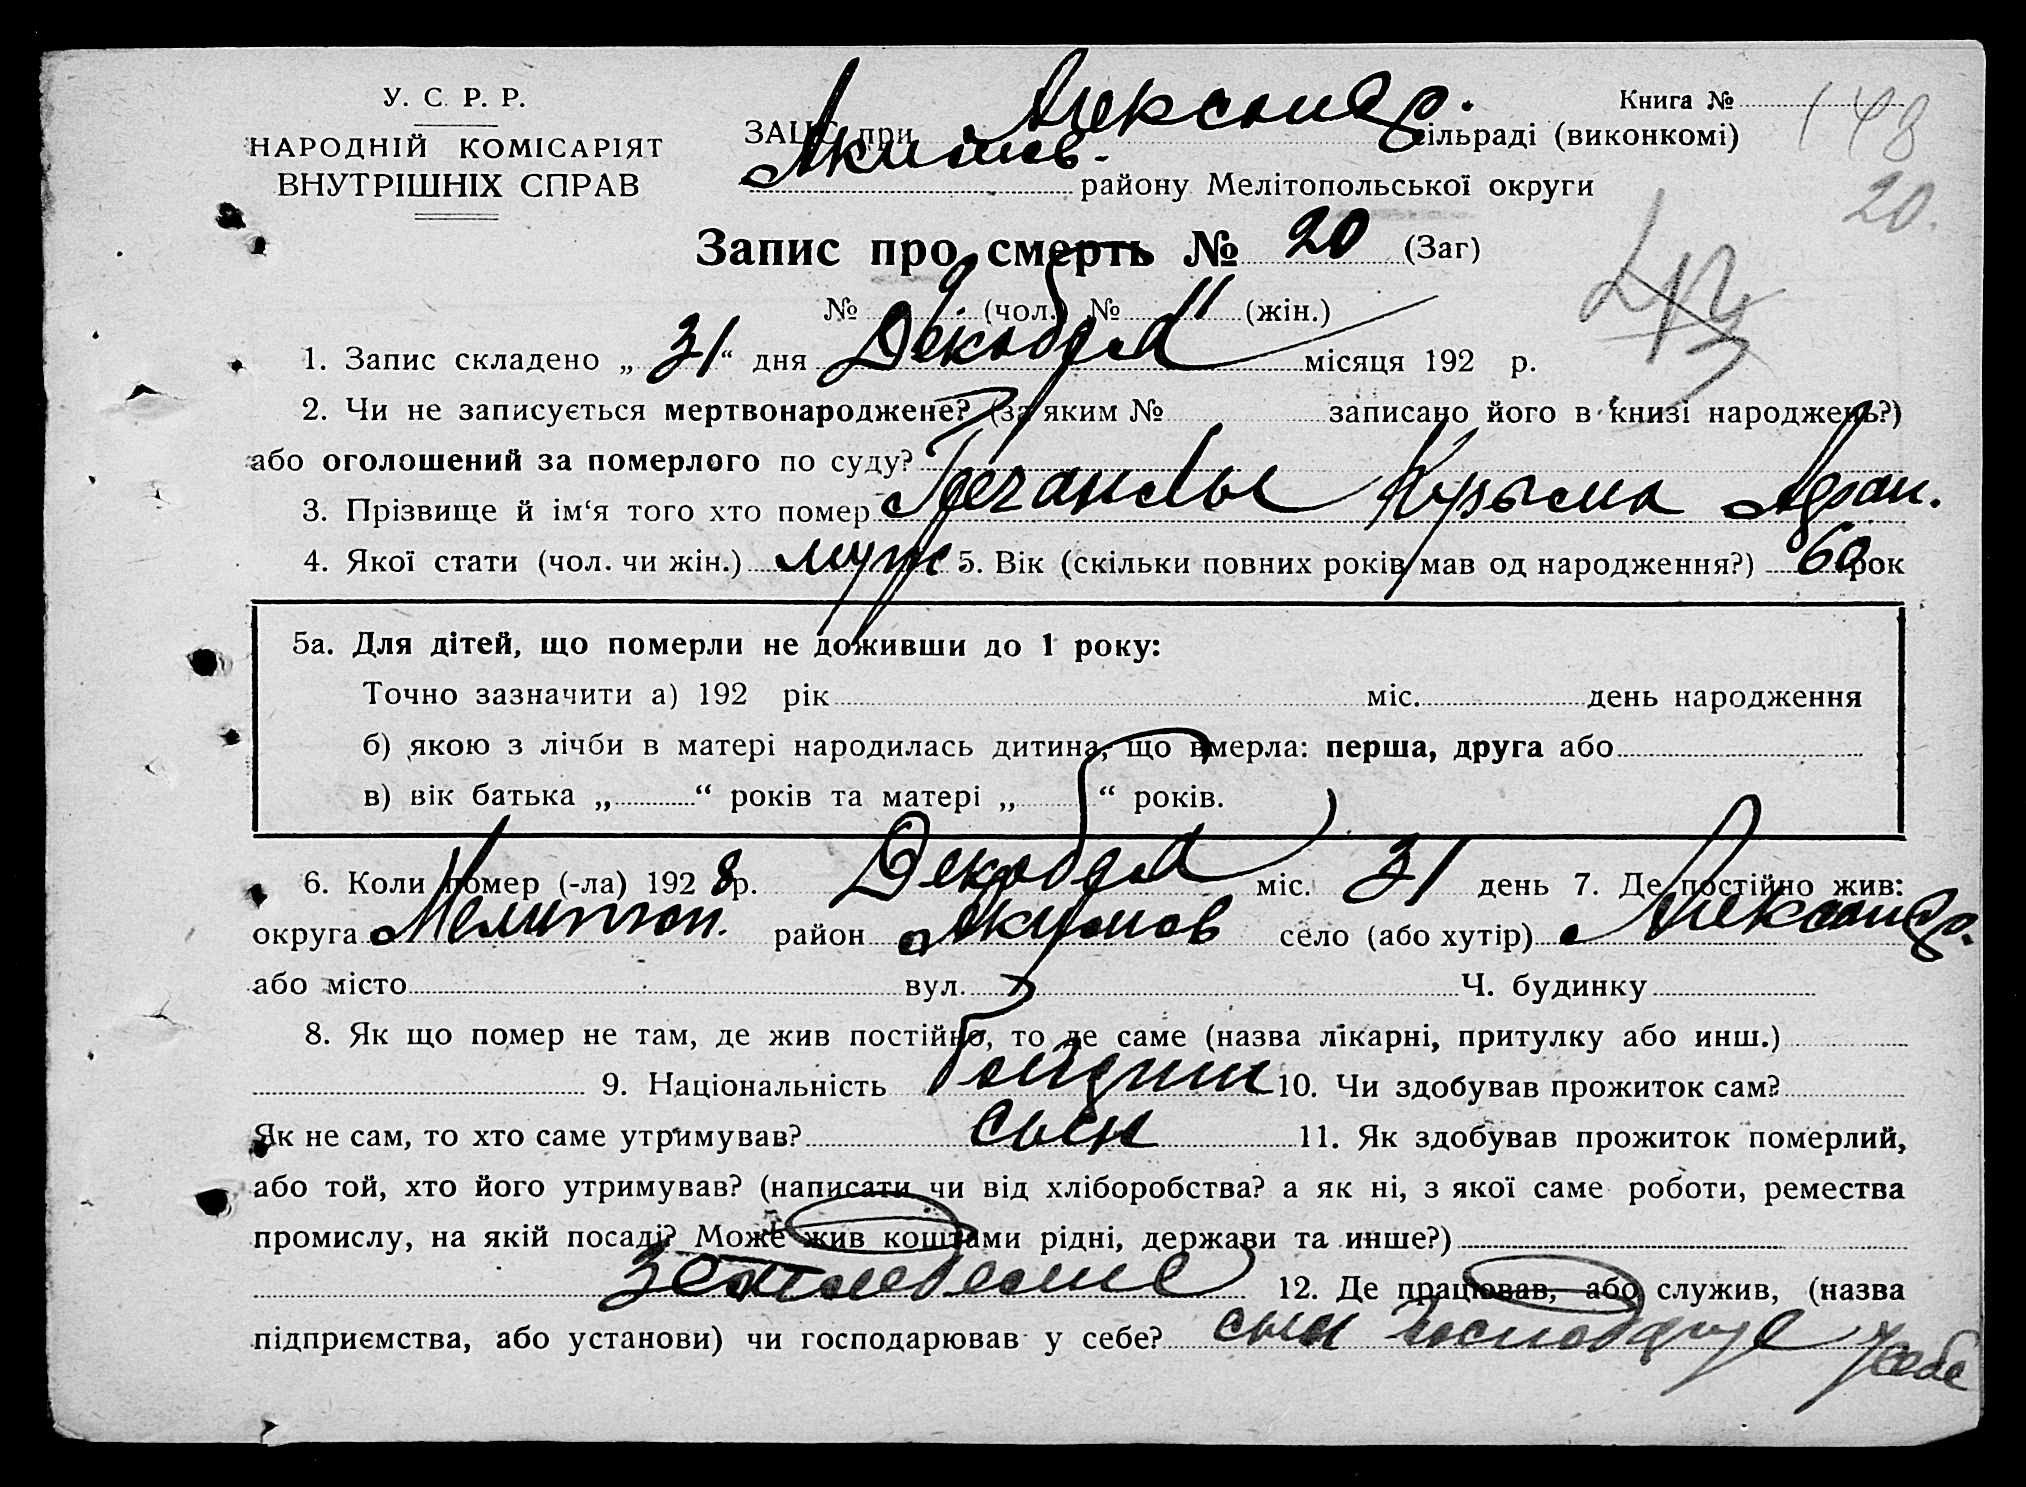 У. С. Р. Р.
НАРОДНІЙ КОМІСАРІЯТ
ВНУТРІШНІХ СПРАВ
Книга №
148
20.
ЗАЦС при Александр. сільраді (виконкомі)
Акимов. району Мелітопольської округи
Запис про смерть № 20 (Заг)
№ 9 (чол.) № 11 (жін.)
1. Запис складено „31“ дня Декабря місяця 192 р.
2. Чи не записується мертвонароджене? (за яким № записано його в книзі народжень?)
або оголошений за померлого по суду?
3. Прізвище й ім‘я того хто помер
4. Якої стати (чол. чи жін.) муж 5. Вік (скільки повних років мав од народження?) 60 рок
5а. Для дітей, що померли не доживши до 1 року:
Точно зазначити а) 192 рік міс. день народження
б) якою з лічби в матері народилась дитина, що вмерла: перша, друга або
в) вік батька „ “ років та матері „ “ років.
6. Коли помер (-ла) 1928 р. Декабря міс. 31 день 7. Де постійно жив:
округа Мелитоп. район Акимов село (або хутір) Александр.
або місто вул. Ч. будинку
8. Як що помер не там, де жив постійно, то де саме (назва лікарні, притулку або инш.)
9. Національність 10. Чи здобував прожиток сам?
Як не сам, то хто саме утримував? сын 11. Як здобував прожиток померлий,
або той, хто його утримував? (написати чи від хліборобства? а як ні, з якої саме роботи, ремества
промислу, на якій посаді? Може жив коштами рідні, держави та инше?)
земледелие 12. Де працював, або служив, (назва
підприємства, або установи) чи господарював у себе? сын господарує у себе